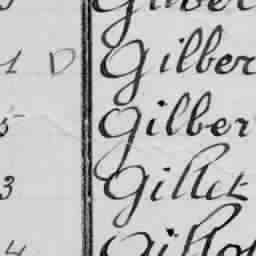 Gilber
1 D Gilber
5 Gilber
3 Gillet
4 Gillot